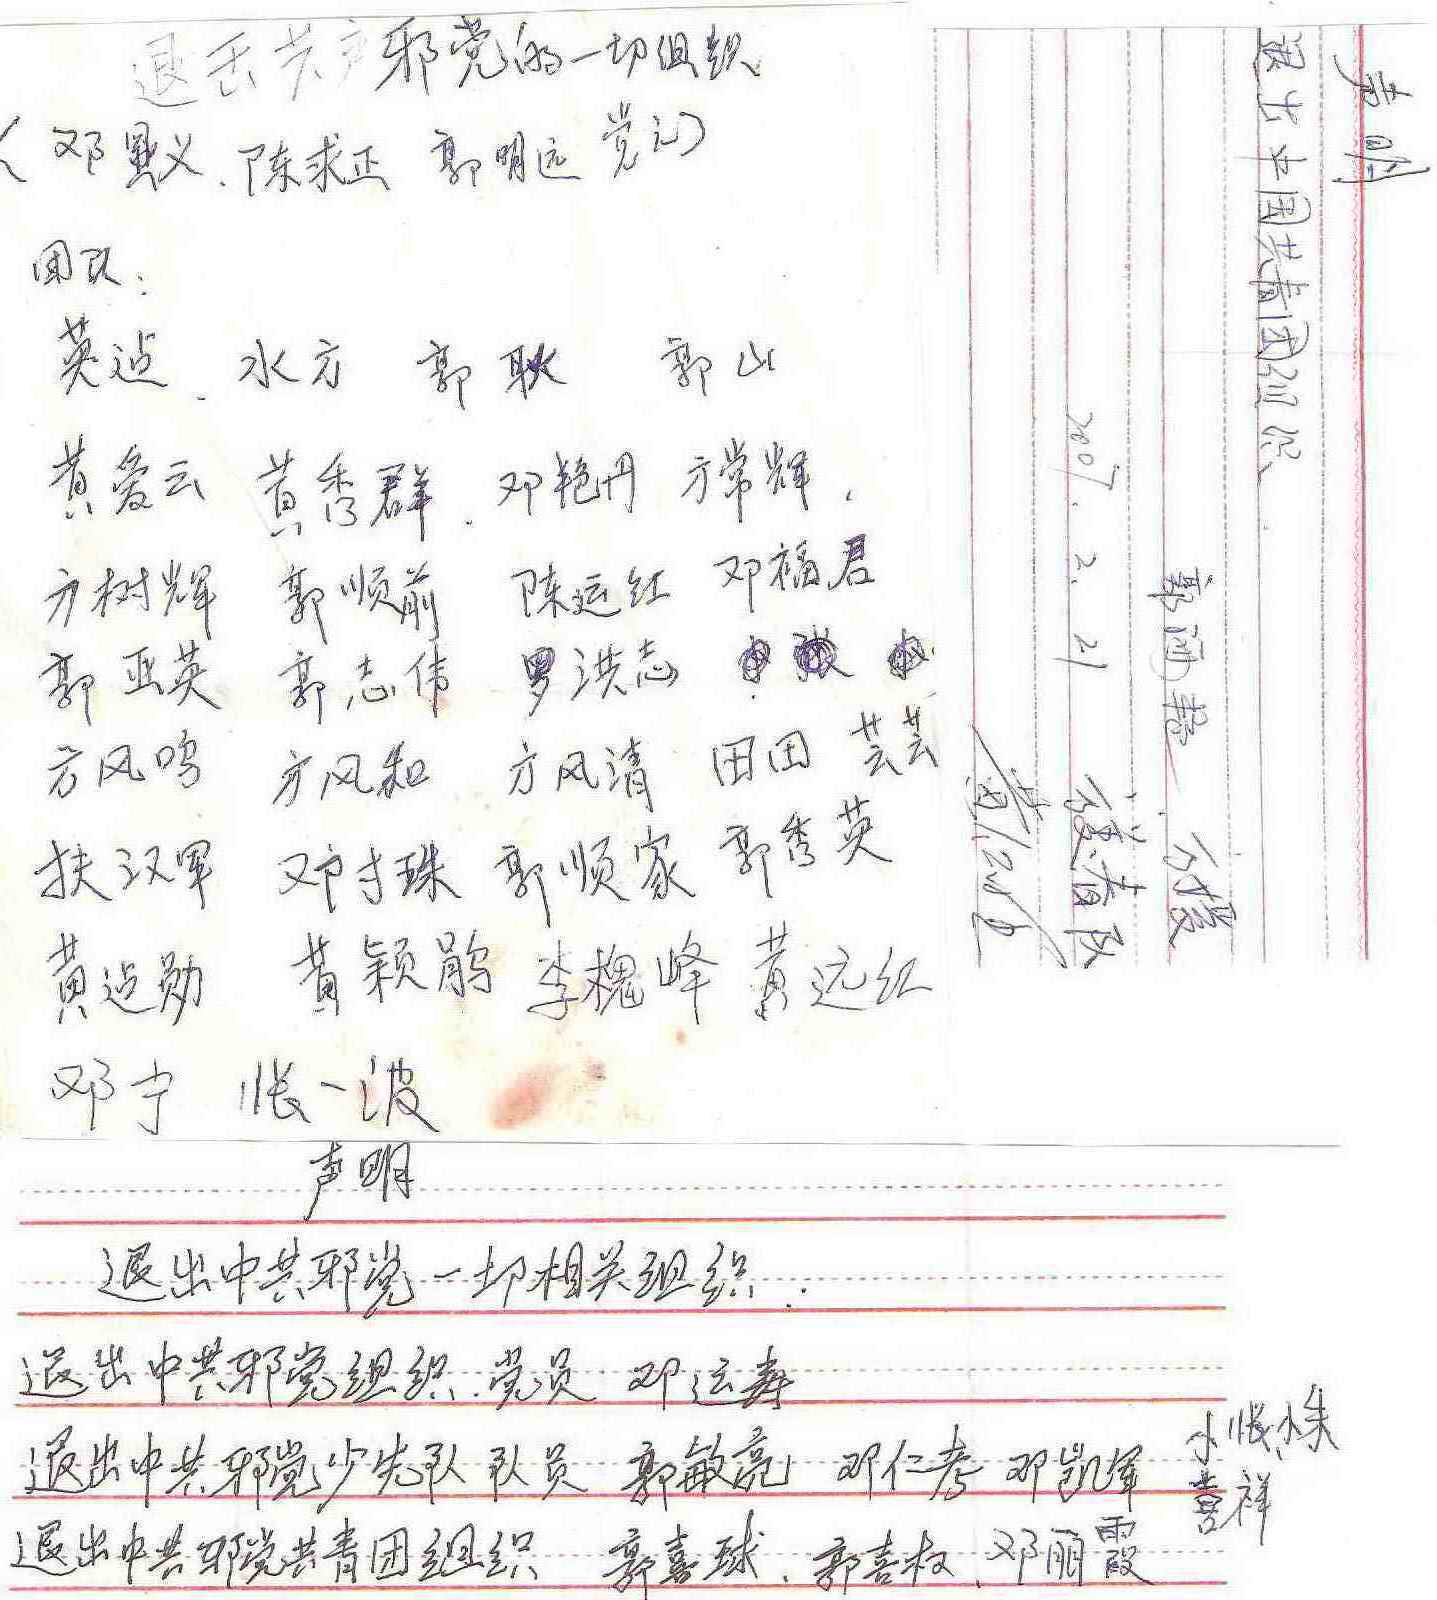 退去共产邪党的一切组织
(邓显义、陈求正 郭明远 党元)
团队:
英运、水方 郭耿 郭山
黄爱云 黄秀群、邓艳丹 方常辉,
方树辉 郭顺前 陈运红 邓福君
郭亚英 郭志伟 罗洪志
方风鸣 方风和 方风清 田田 芸芸
扶汉军 邓才珠 郭顺家 郭秀英
黄运勋 黄颖鹃 李槐峰 黄远红
邓宁 张一波
声明
退出中国共青团组织.
郭 方援
2007.2.21
黄
声明
退出中共邪党一切相关组织.
退出中共邪党组织.党员 邓运寿
退出中共邪党少先队队员 郭敏亮 邓仁孝 邓凯军 小张、小朱
喜祥
退出中共邪党共青团组织 郭喜球、郭吉权、邓丽霞